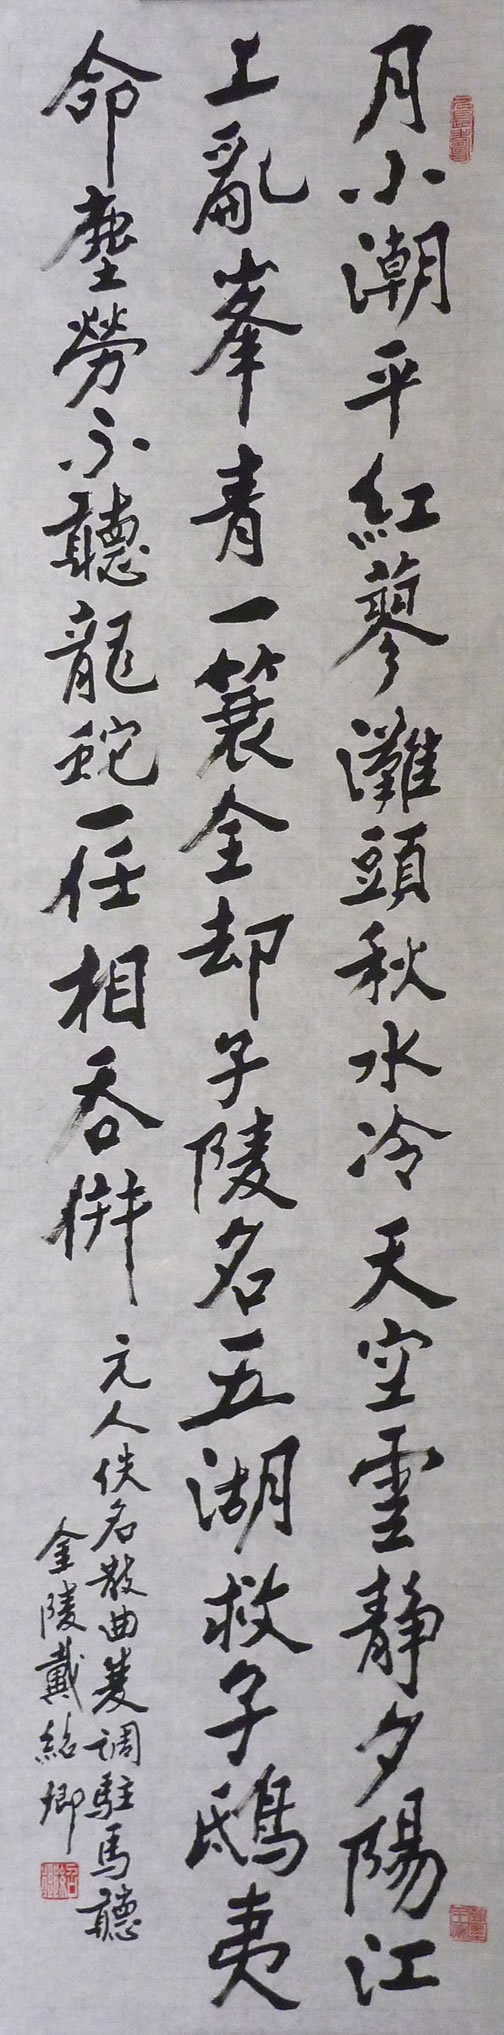 月小潮平紅蓼灘頭秋水冷天空雲靜夕陽江
上亂峯青一蓑全却子陵名五湖救子鴟夷
命塵勞不聽龍蛇一任相吞併
元人佚名散曲雙調駐馬聽
金陵戴紹卿